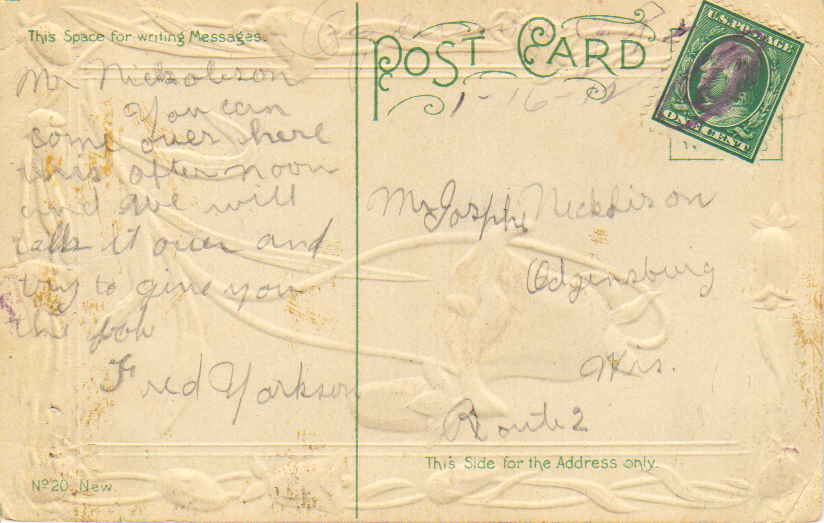 This Space for writing Messages.
POST CARD
U.S. POSTAGE
ONE CENT
1-16-12
Mr Nickolison
You can
come over here
this after noon
and we will
talk it over and
try to give you
the job
Fred Yorkson
Mr Josph Nickolison
Odginsburg
Wis.
Route 2
This Side for the Address only.
No 20. New.